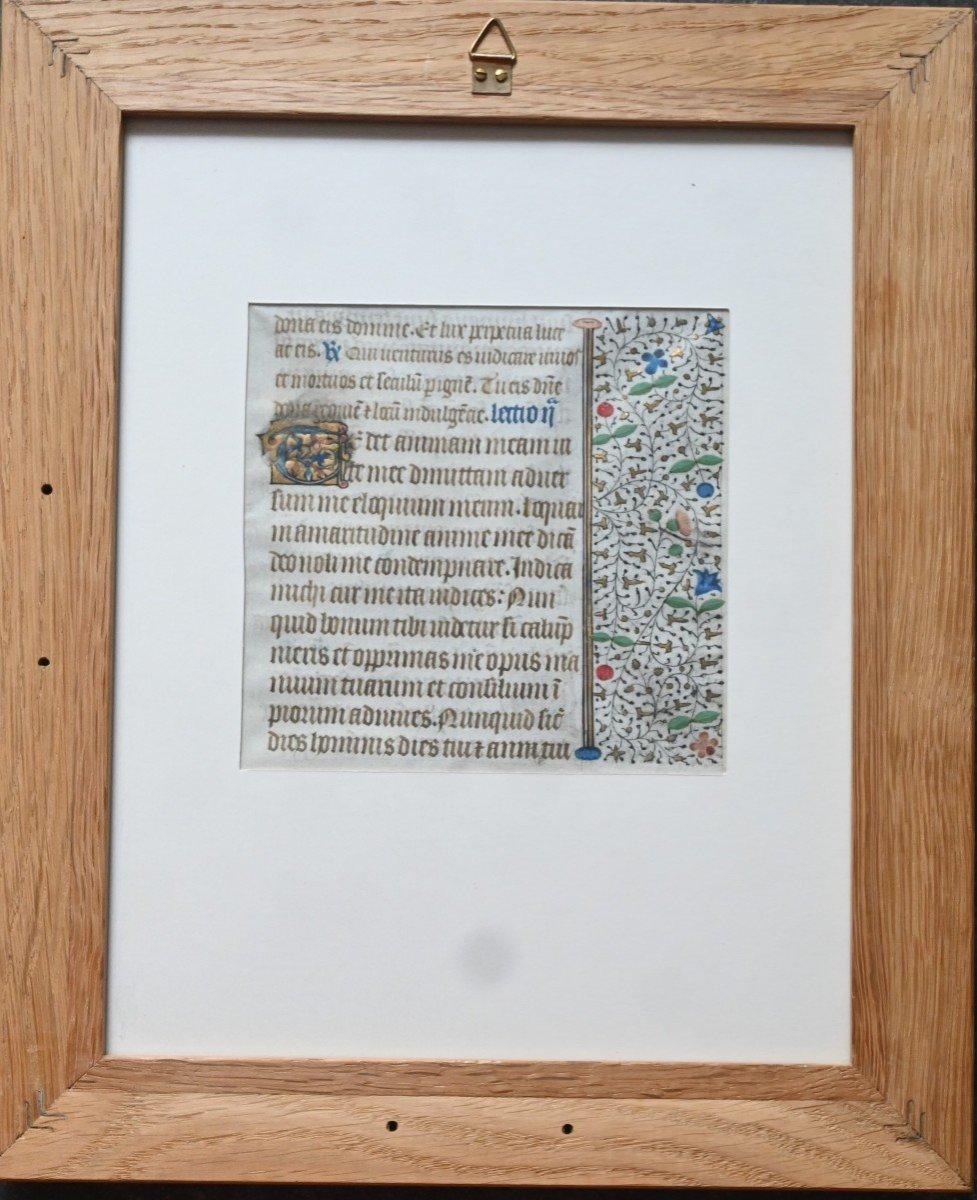 dona eis domine. Et lux perpetua luce
at eis. Qui venturus es iudicare vivos
et mortuos et seculū p ignē. Tu eis dn̄e
dona requiē ⁊ locū indulgēcie. lectio ij
Tedet animam meam vi
te mee dimittam adver
sum me eloquium meum. loquar
in amaritudine anime mee dicā
deo noli me condempnare. Indica
michi cur me ita iudices: Nun
quid bonum tibi videtur si calūp
nieris et opprimas me opus ma
nuum tuarum et consilium ī
piorum adiuves. Nunquid sic̄
dies hominis dies tui ⁊ anni tui